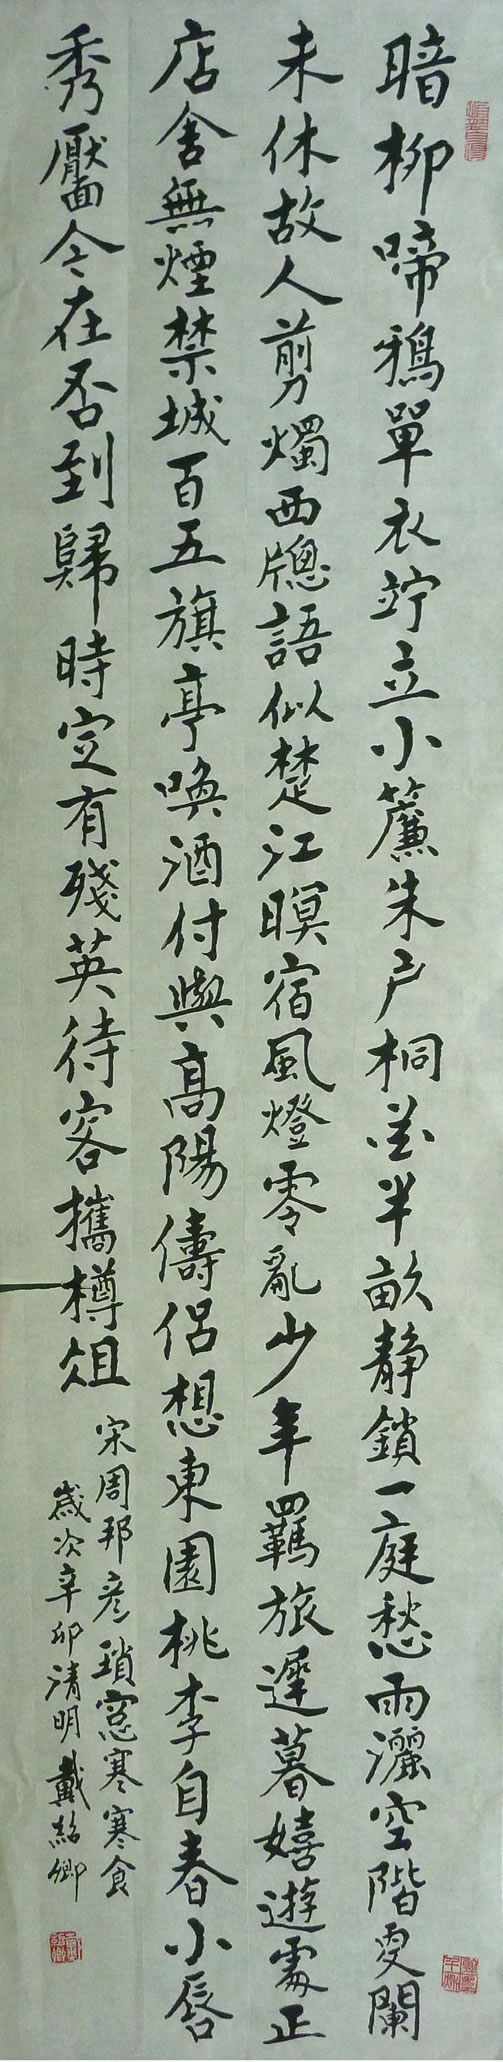 暗柳啼鴉單衣竚立小簾朱户桐花半畝静鎖一庭愁雨灑空階更闌
未休故人剪燭西牕語似楚江暝宿風燈零亂少年羈旅遲暮嬉遊處正
店舍無煙禁城百五旗亭喚酒付與高陽儔侣想東園桃李自春小唇
秀靨今在否到歸時定有殘英待客攜樽俎
宋周邦彦瑣窓寒寒食
歲次辛卯清明戴紹卿